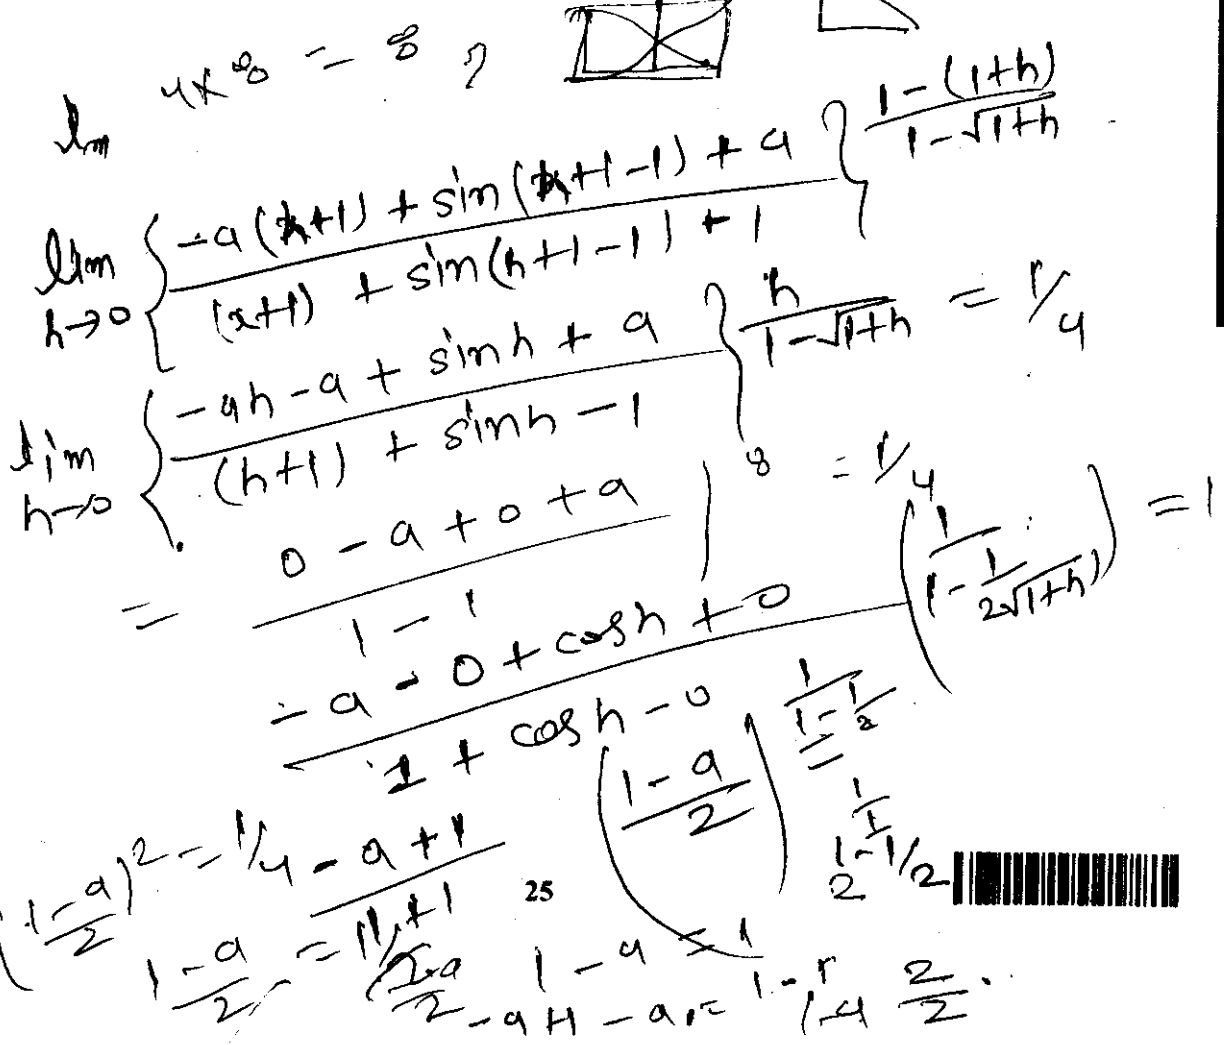 4×∞ = ∞ ?
lm
lim h→0 { (-a(h+1) + sin(h+1-1) + a) / ((x+1) + sin(h+1-1) + 1) } ^ (1-(1+h)) / (1-√1+h)
lim h→0 { (-ah-a + sinh + a) / ((h+1) + sinh - 1) } ^ h / (1-√1+h) = 1/4
= (0 - a + 0 + a) / (1 - 1) | ^ 8 = 1/4
(-a - 0 + cosh + 0) / (1 + cosh - 0) ^ (1 / (1 - 1/(2√1+h))) = 1
((1-a)/2) ^ 1/(1-1/2)
1/(1-1/2)
((1-a)/2)^2 = 1/4
(-a+1) / (1+1)
25
(1-a)/2 = 1/2
1-a = 1
-a+1 - a =
2/2